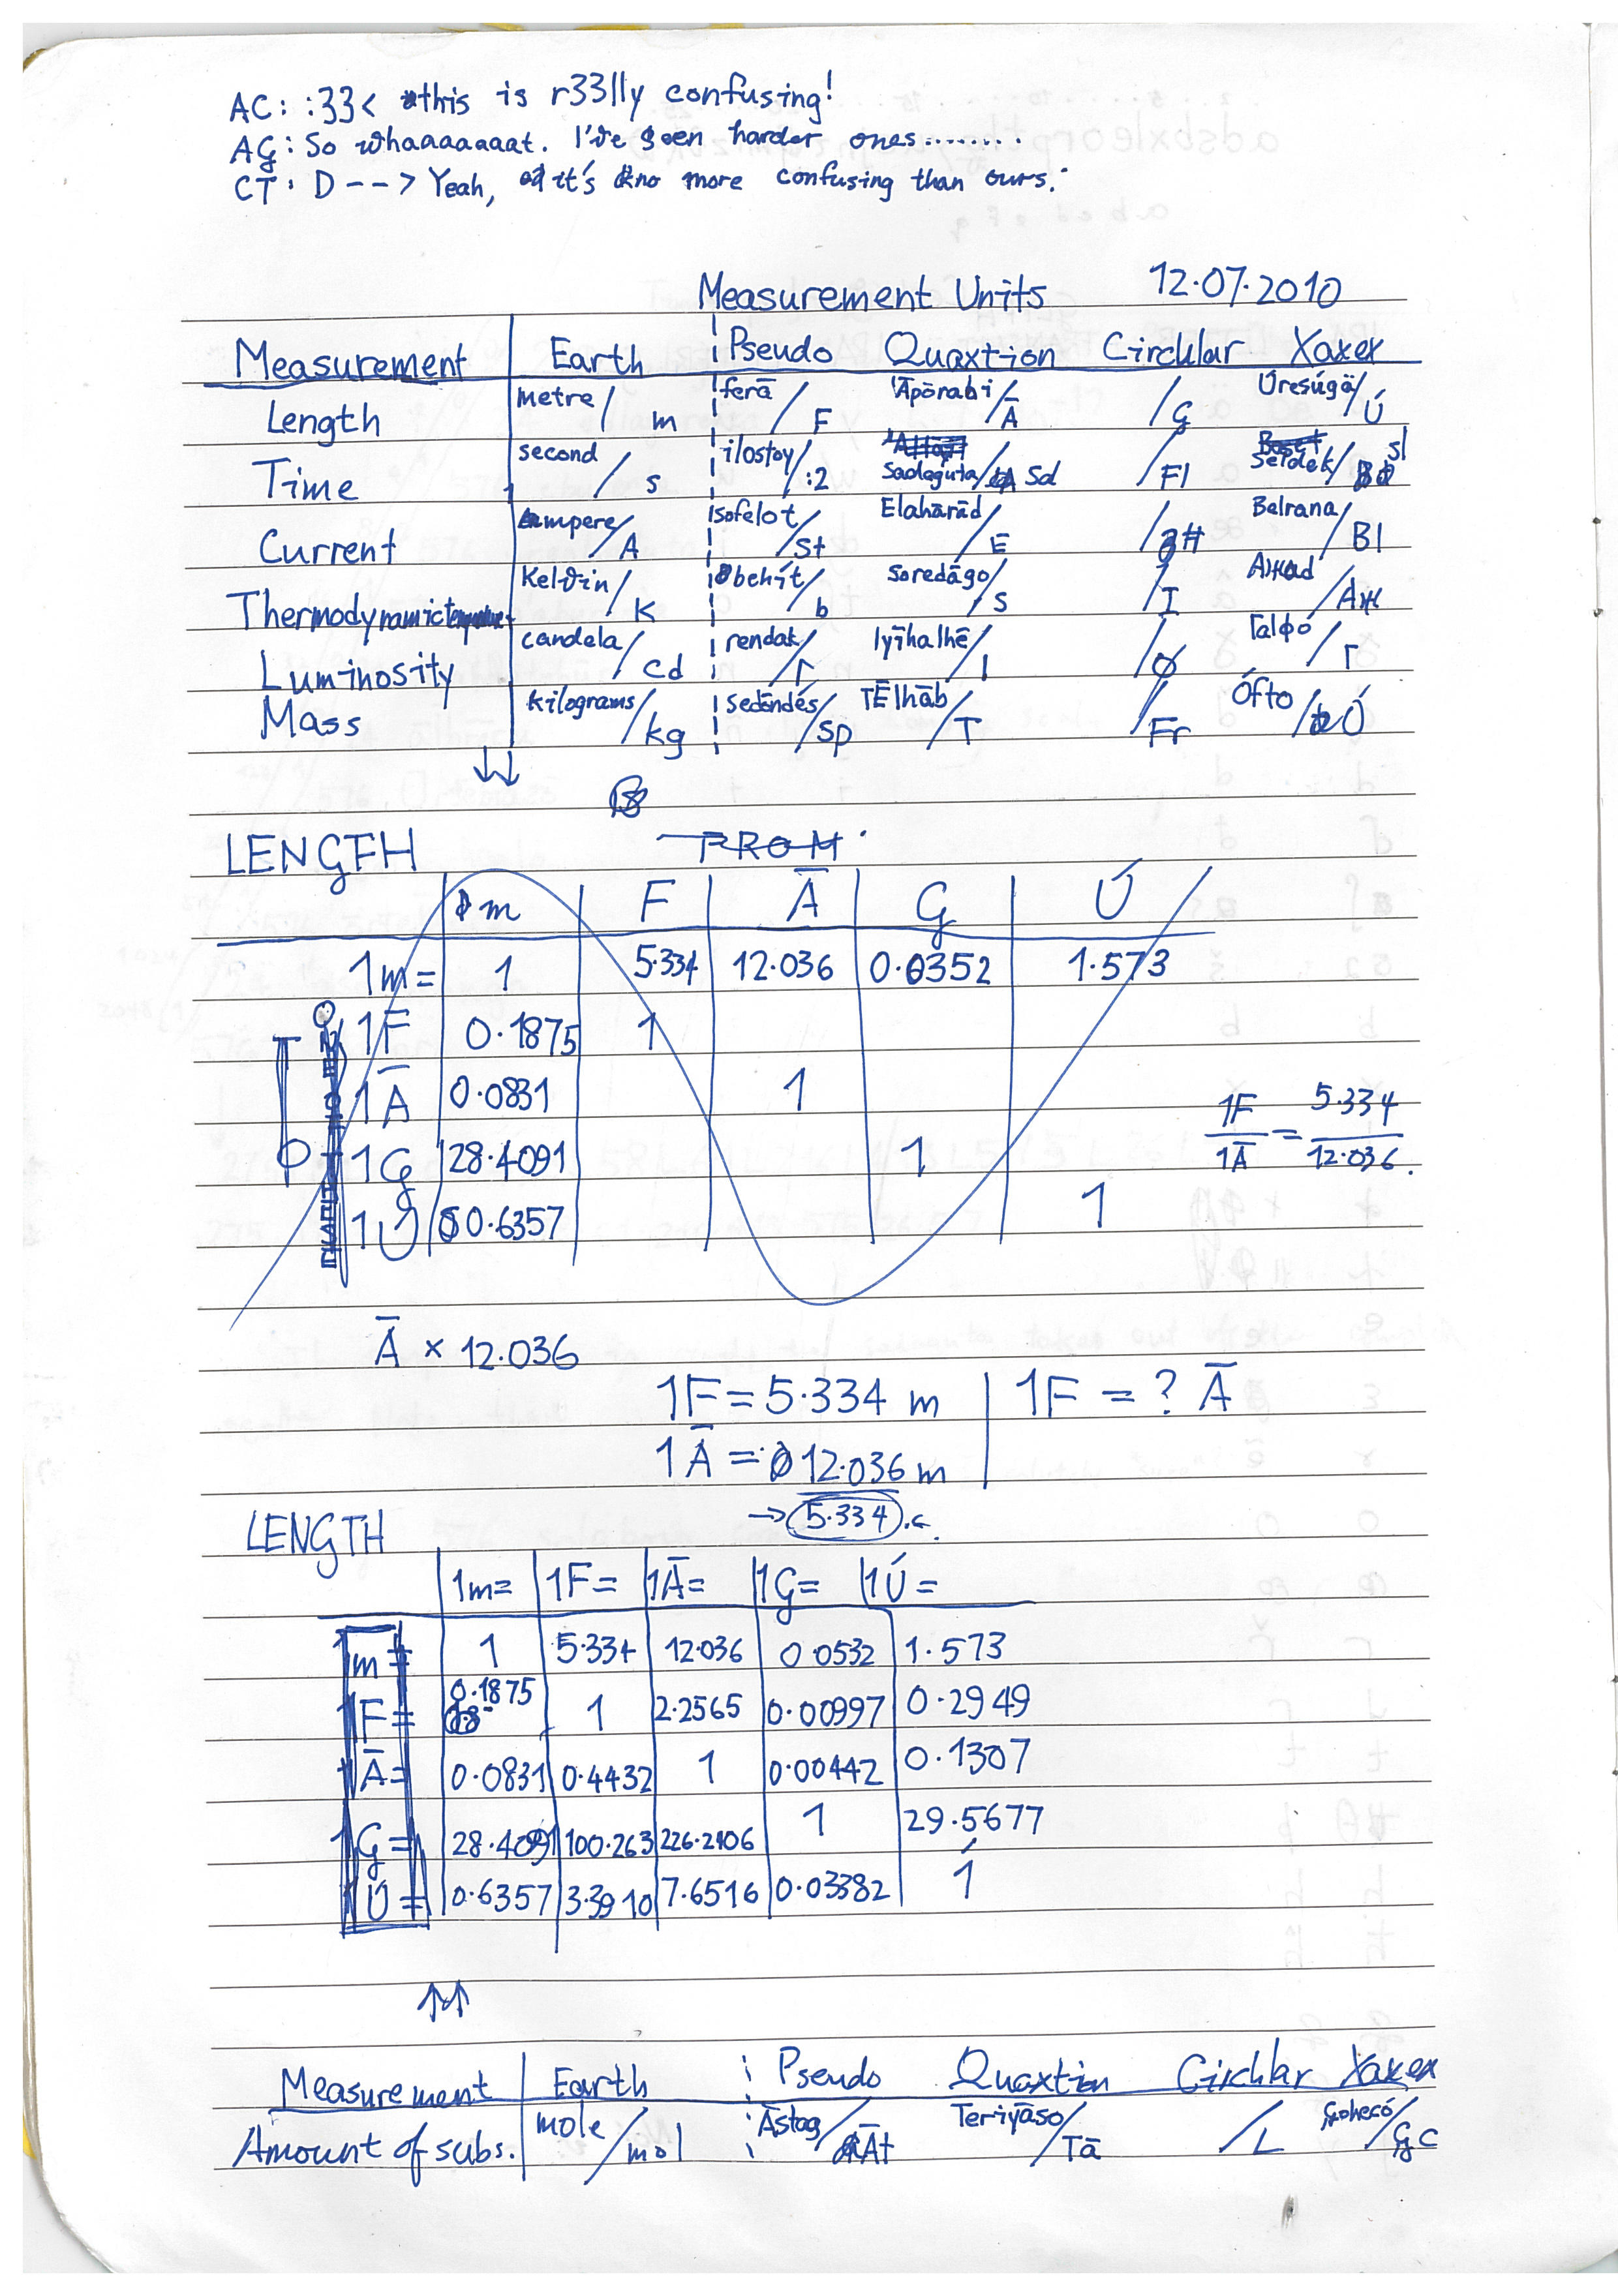 AC: :33< *this is r33lly confusing!
AG: So whaaaaaaat. I've seen harder ones........
CT: D --> Yeah, it's no more confusing than ours.
Measurement Units 12.07.2010
Measurement Earth Pseudo Quaxtion Circklar Xaxex
Length metre/m ferā/F Āpōrabi/Ā /G Úresúgö/Ú
Time second/s ilostoy/:2 Sadaguta/Sd /Fl Seldek/sl
Current Ampere/A Isofelot/St Elahārād/E /3# Belrana/Bl
Thermodynamic Kelvin/K behít/b Soredāgo/S /I /Aж
Luminosity candela/cd rendak/r Iyīhalhē/l /Ø Γalφó/Γ
Mass kilograms/kg sedéndés/Sp TĒlhāb/T /Fr Ófto/Ó
↓↓
LENGTH FROM
m F Ā G Ú
1m= 1 5.334 12.036 0.0352 1.573
1F 0.1875 1
1Ā 0.0831 1
1F/1Ā = 5.334/12.036.
1G 28.4091 1
1Ú 0.6357 1
Ā × 12.036
1F = 5.334 m | 1F = ? Ā
1Ā = 12.036 m
→ 5.334
LENGTH
1m= 1F= 1Ā= 1G= 1Ú=
1m= 1 5.334 12.036 0.0532 1.573
1F= 0.1875 1 2.2565 0.00997 0.2949
1Ā= 0.0831 0.4432 1 0.00442 0.1307
1G= 28.4091 100.263 226.2406 1 29.5677
1Ú= 0.6357 3.3910 7.6516 0.03382 1
↑↑
Measurement Earth Pseudo Quaxtion Circklar Xaxex
Amount of subs. mole/mol Āstag/Āt Teriyāso/Tā /L Gohecó/Gc